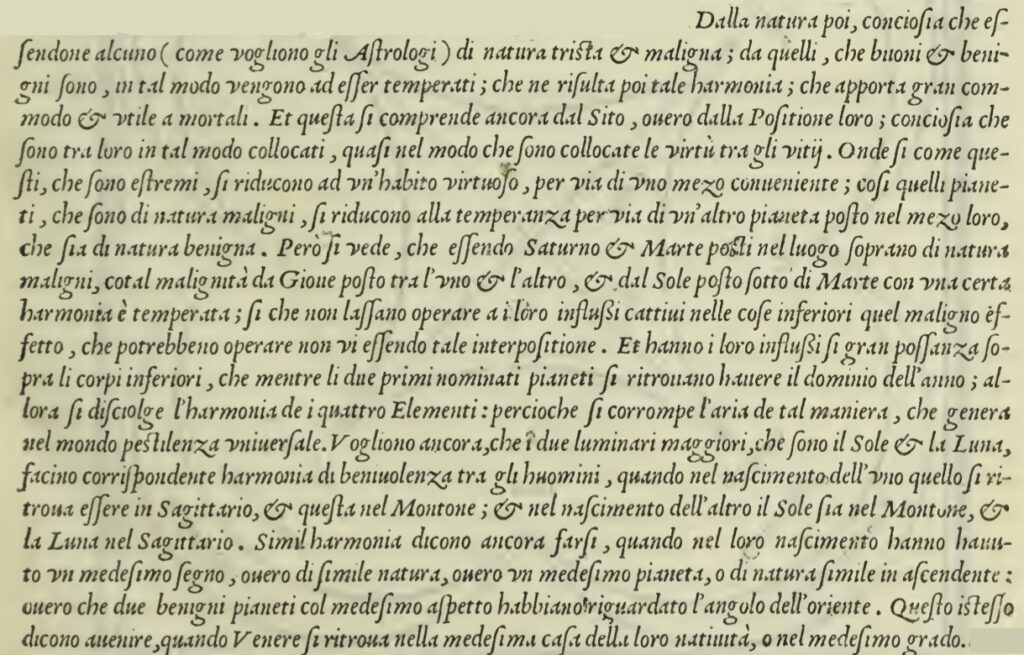 Dalla natura poi, conciosia che es-
sendone alcuno (come vogliono gli Astrologi) di natura trista & maligna; da quelli, che buoni & beni-
gni sono, in tal modo vengono ad esser temperati; che ne risulta poi tale harmonia; che apporta gran com-
modo & vtile a mortali. Et questa si comprende ancora dal Sito, ouero dalla Positione loro; conciosia che
sono tra loro in tal modo collocati, quasi nel modo che sono collocate le virtù tra gli vitij. Onde si come que-
sti, che sono estremi, si riducono ad vn'habito virtuoso, per via di vno mezo conueniente; cosi quelli piane-
ti, che sono di natura maligni, si riducono alla temperanza per via di vn'altro pianeta posto nel mezo loro,
che sia di natura benigna. Però si vede, che essendo Saturno & Marte posti nel luogo soprano di natura
maligni, cotal malignità da Gioue posto tra l'vno & l'altro, & dal Sole posto sotto di Marte con vna certa
harmonia è temperata; si che non lassano operare a i loro influssi cattiui nelle cose inferiori quel maligno ef-
fetto, che potrebbeno operare non vi essendo tale interpositione. Et hanno i loro influssi si gran possanza so-
pra li corpi inferiori, che mentre li due primi nominati pianeti si ritrouano hauere il dominio dell'anno; al-
lora si disciolge l'harmonia de i quattro Elementi: percioche si corrompe l'aria de tal maniera, che genera
nel mondo pestilenza vniuersale. Vogliono ancora, che i due luminari maggiori, che sono il Sole & la Luna,
facino corrispondente harmonia di beniuolenza tra gli huomini, quando nel nascimento dell'vno quello si ri-
troua essere in Sagittario, & questa nel Montone; & nel nascimento dell'altro il Sole sia nel Montone, &
la Luna nel Sagittario. Simil harmonia dicono ancora farsi, quando nel loro nascimento hanno hauu-
to vn medesimo segno, ouero di simile natura, ouero vn medesimo pianeta, o di natura simile in ascendente:
ouero che due benigni pianeti col medesimo aspetto habbiano riguardato l'angolo dell'oriente. Questo istesso
dicono auenire, quando Venere si ritroua nella medesima casa della loro natiuità, o nel medesimo grado.